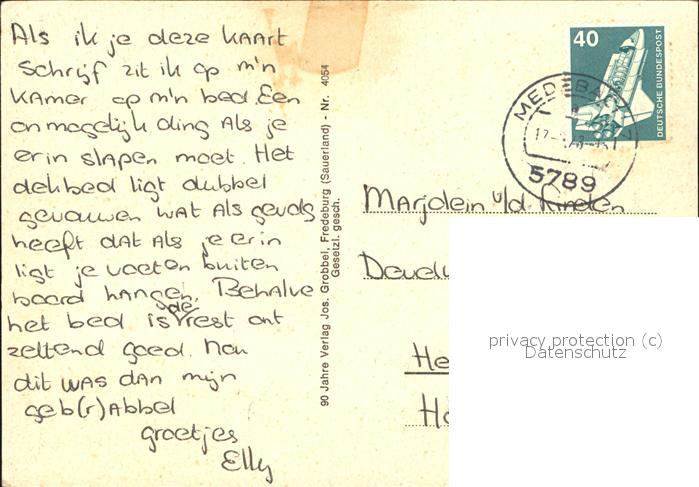 Als ik je deze kaart
schrijf zit ik op m'n
kamer op m'n bed. Een
onmogelijk ding Als je
erin slapen moet. Het
dekbed ligt dubbel
gevouwen wat Als gevolg
heeft dat Als je erin
ligt je voeten buiten
boord hangen. Behalve
het bed is de rest ont
zettend goed. Nou
dit was dan mijn
geb(r)abbel
groetjes
Elly
90 Jahre Verlag Jos. Grobbel, Fredeburg (Sauerland) - Nr. 4054
Gesetzl. gesch.
40
DEUTSCHE BUNDESPOST
MEDEBACH
5789
Marjolein v/d
He
Ho
privacy protection (c)
Datenschutz